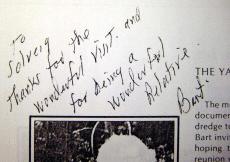 To
Solveig
Thanks for the
wonderful visit. and
for being a
wonderful
Relative.
Bart.
THE YA
The ma
documen
dredge to
Bart invi
hoping t
reunion